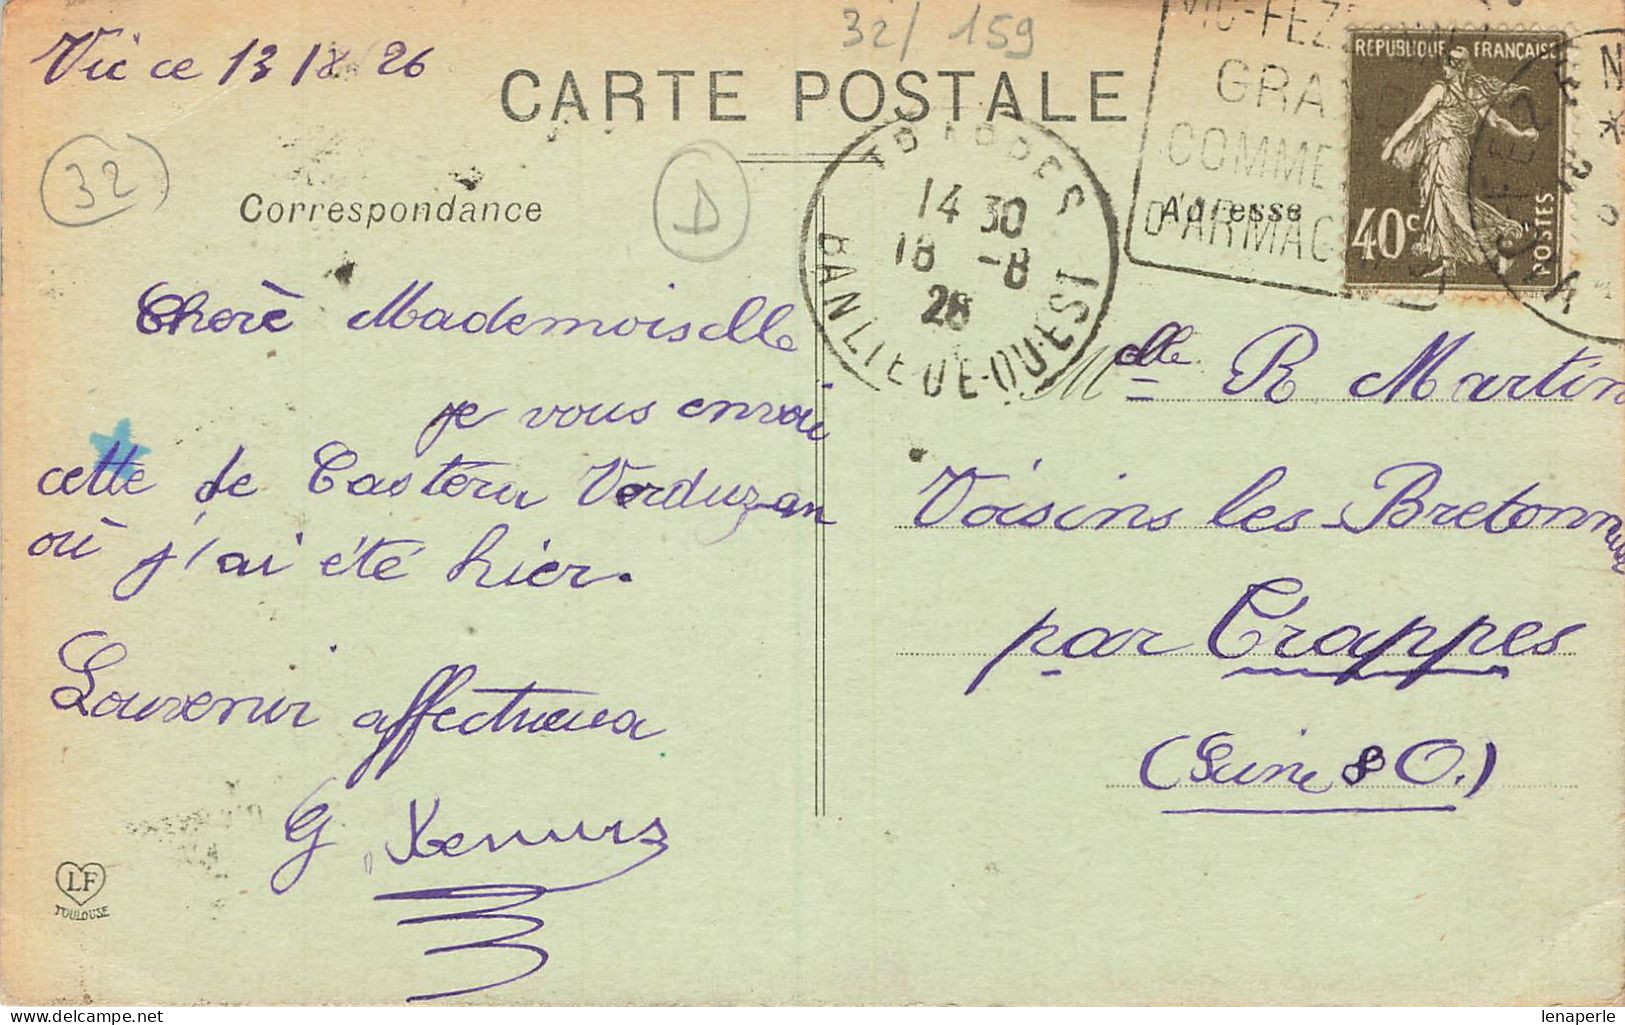 Vic ce 13/8/26
32/ 159
CARTE POSTALE
32
D
Correspondance
Adresse
VIC-FEZ
GRA
COMME
D'ARMAG
REPUBLIQUE FRANÇAISE
40c
POSTES
TRAPPES
14 30
18 -8
26
BANLIEUE-OUEST
Cherè Mademoiselle
je vous envoi
cette de Castéra Verduzan
où j'ai été hier.
Souvenir affectueux
G
LF
TOULOUSE
Melle R Martin
Voisins les Bretonneux
par Trappes
(Seine & O.)
delcampe.net
lenaperle